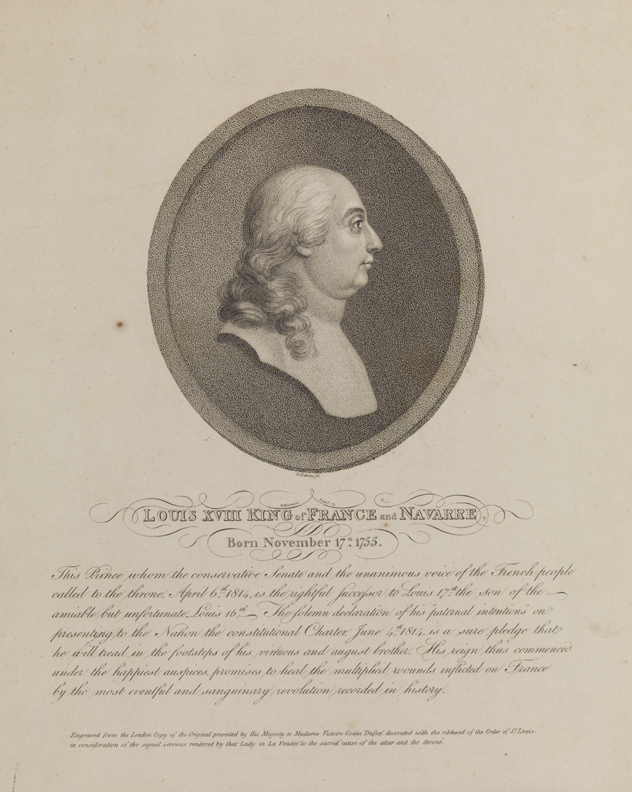 LOUIS XVIII KING of FRANCE and NAVARRE,
Born November 17.th 1755.
This Prince whom the conservative Senate and the unanimous voice of the French people
called to the throne, April 6.th 1814, is the rightful successor to Louis 17.th the son of the
amiable but unfortunate Louis 16.th The solemn declaration of his paternal intentions on
presenting to the Nation the constitutional Charter, June 4.th 1814, is a sure pledge that
he will tread in the footsteps of his virtuous and august brother. His reign thus commenced
under the happiest auspices, promises to heal the multiplied wounds inflicted on France
by the most eventful and sanguinary revolution recorded in history.
Engraved from the London Copy of the Original presented by His Majesty to Madame Victoire Goüin Dufief decorated with the ribband of the Order of St. Louis,
in consideration of the signal services rendered by that Lady in La Vendée to the sacred cause of the altar and the throne.